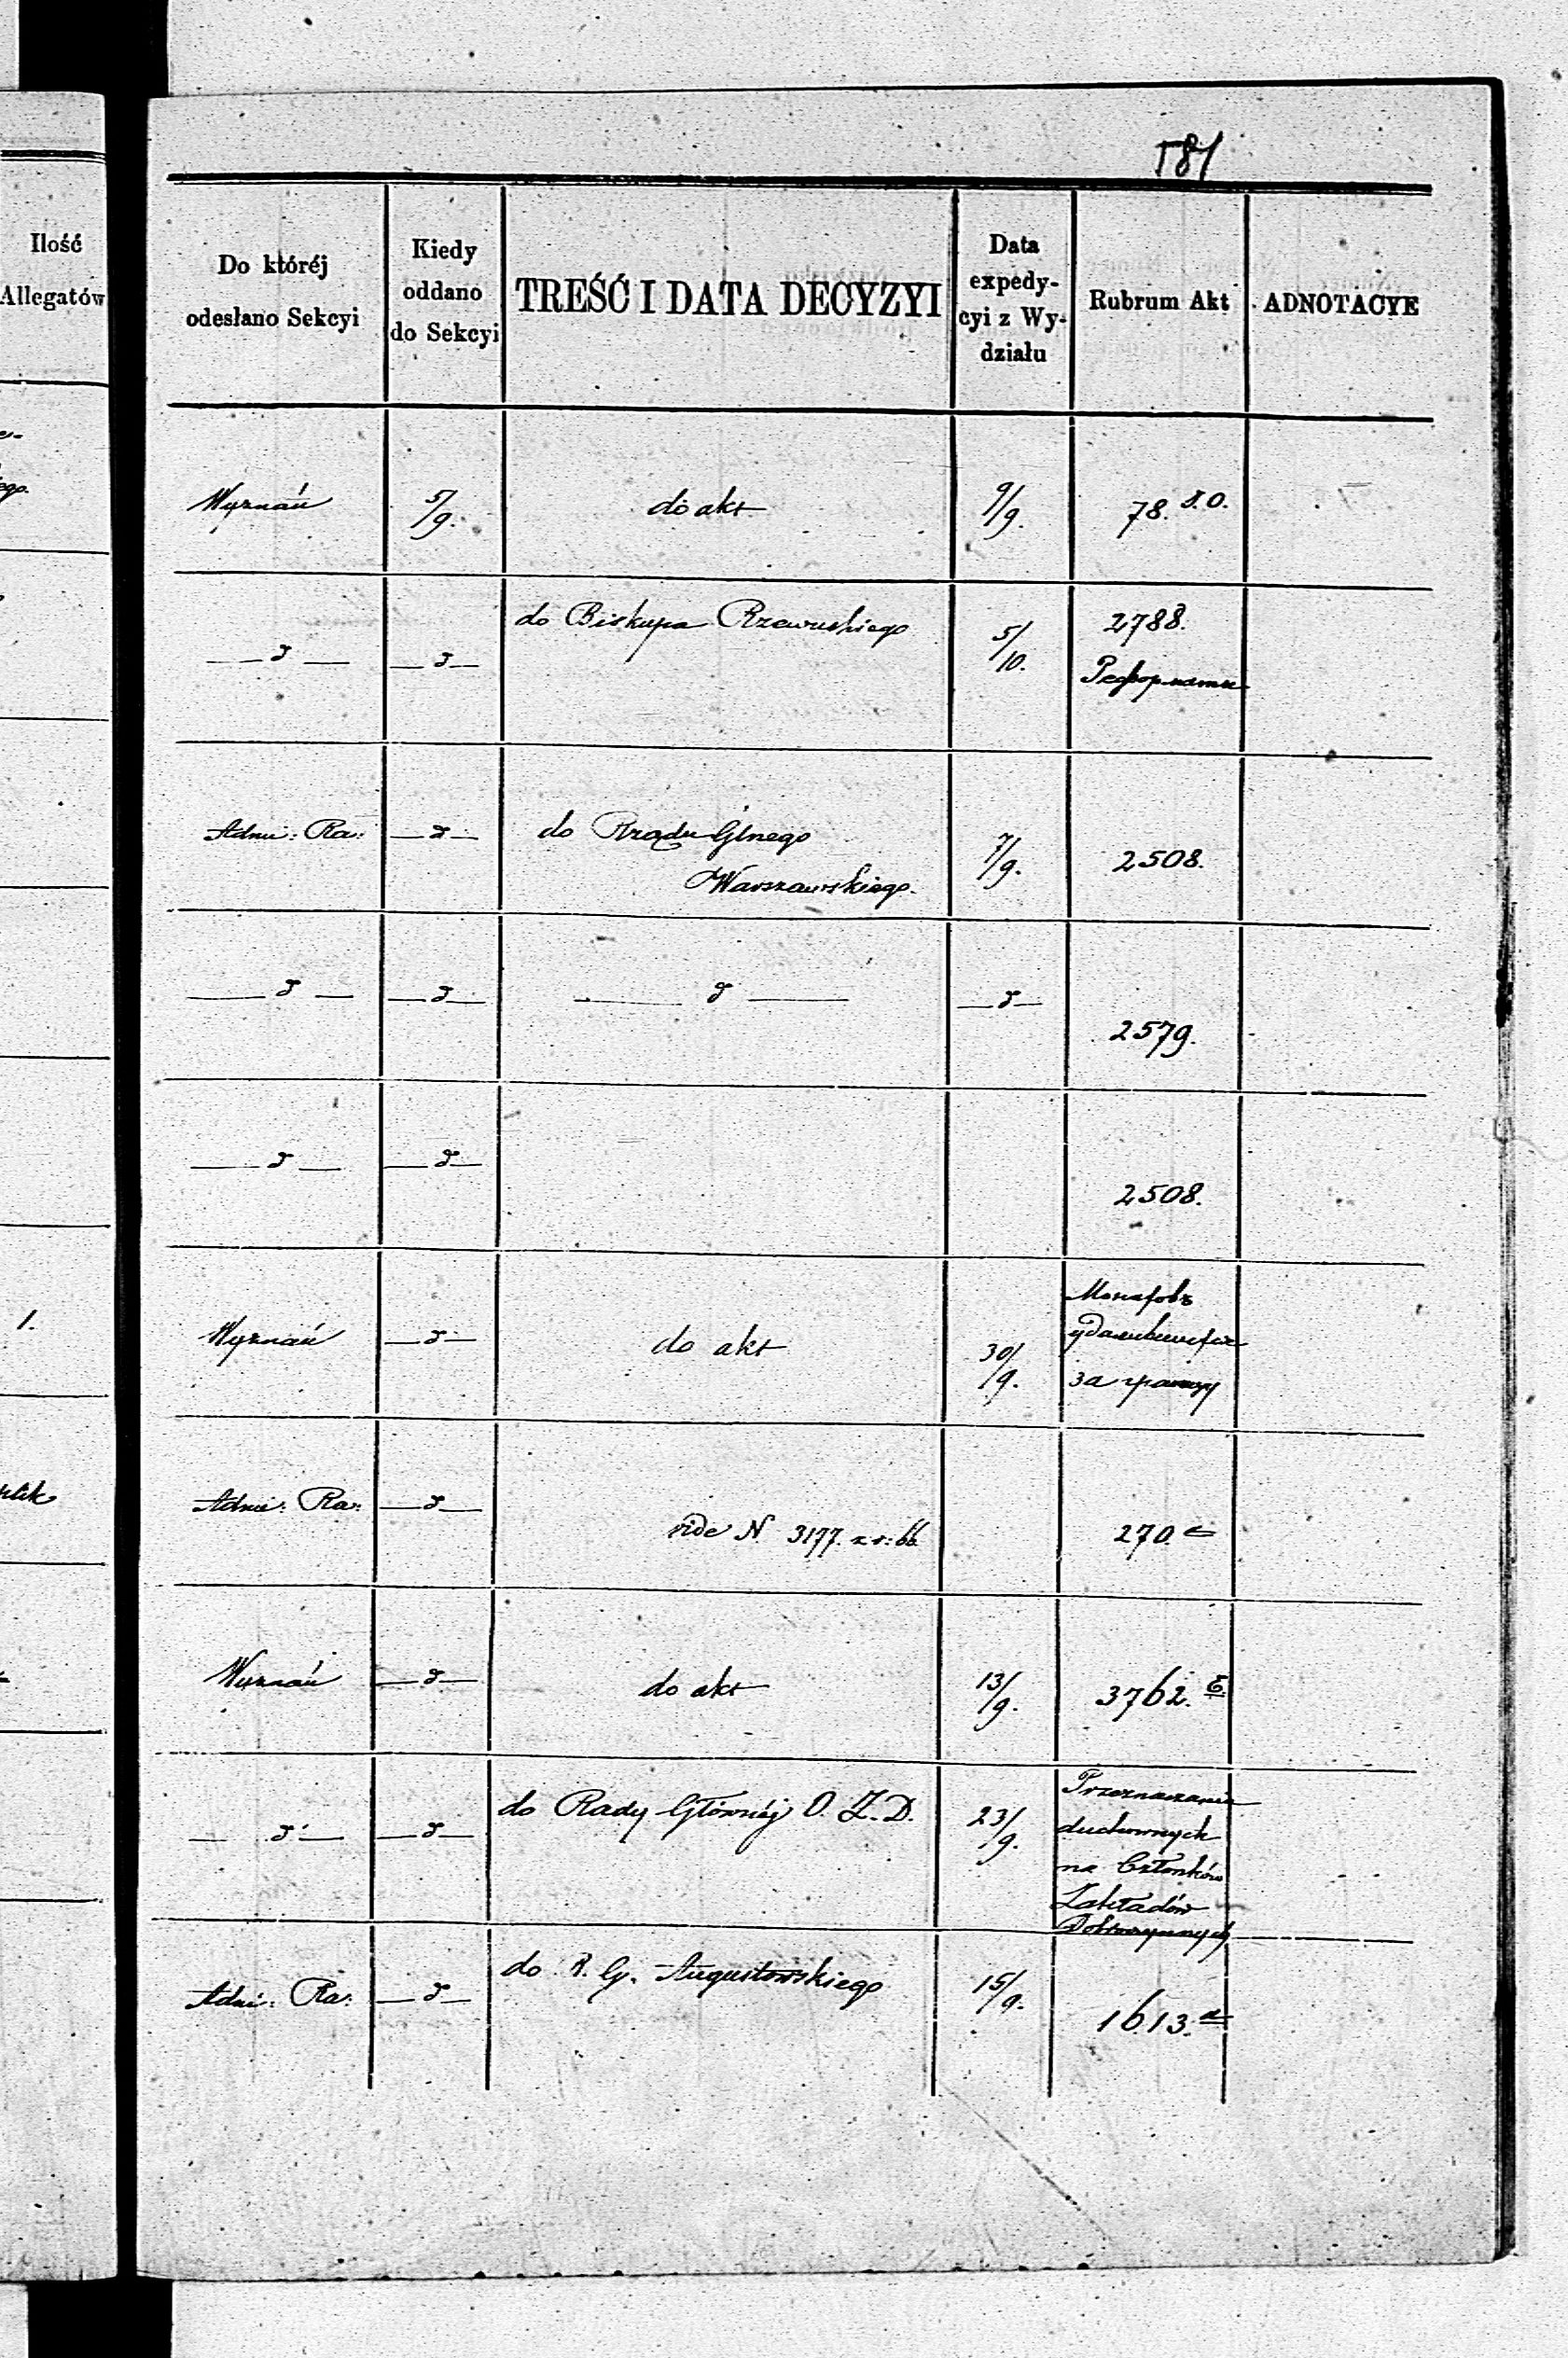 181
Ilość
Allegatów
Do któréj
odesłano Sekcyi
Kiedy
oddano
do Sekcyi
TREŚĆ I DATA DECYZYI
Data
expedy-
cyi z Wy-
działu
Rubrum Akt
ADNOTACYE
Wyznań 5/9. do akt 9/9. 78.
—d— —d— do Biskupa Rzewuskiego 5/10. 2788.
Реформаты
Admi: Ra: —d— do Rządu Glnego
Warszawskiego. 7/9. 2508.
—d— —d— —d— —d— 2579.
—d— —d— 2508.
1.
Wyznań —d— do akt 30/9.
за границу
Admi: Ra: —d— vide N. 3177. 270.
Wyznań —d— do akt 13/9. 3762.
—d— —d— do Rady Głównéj O. Z. D. 23/9.
Przeznaczanie
duchownych
na Członków
Zakładów
Dobroczynnych
Admi: Ra: —d— do R. G. Augustowskiego 15/9. 1613.